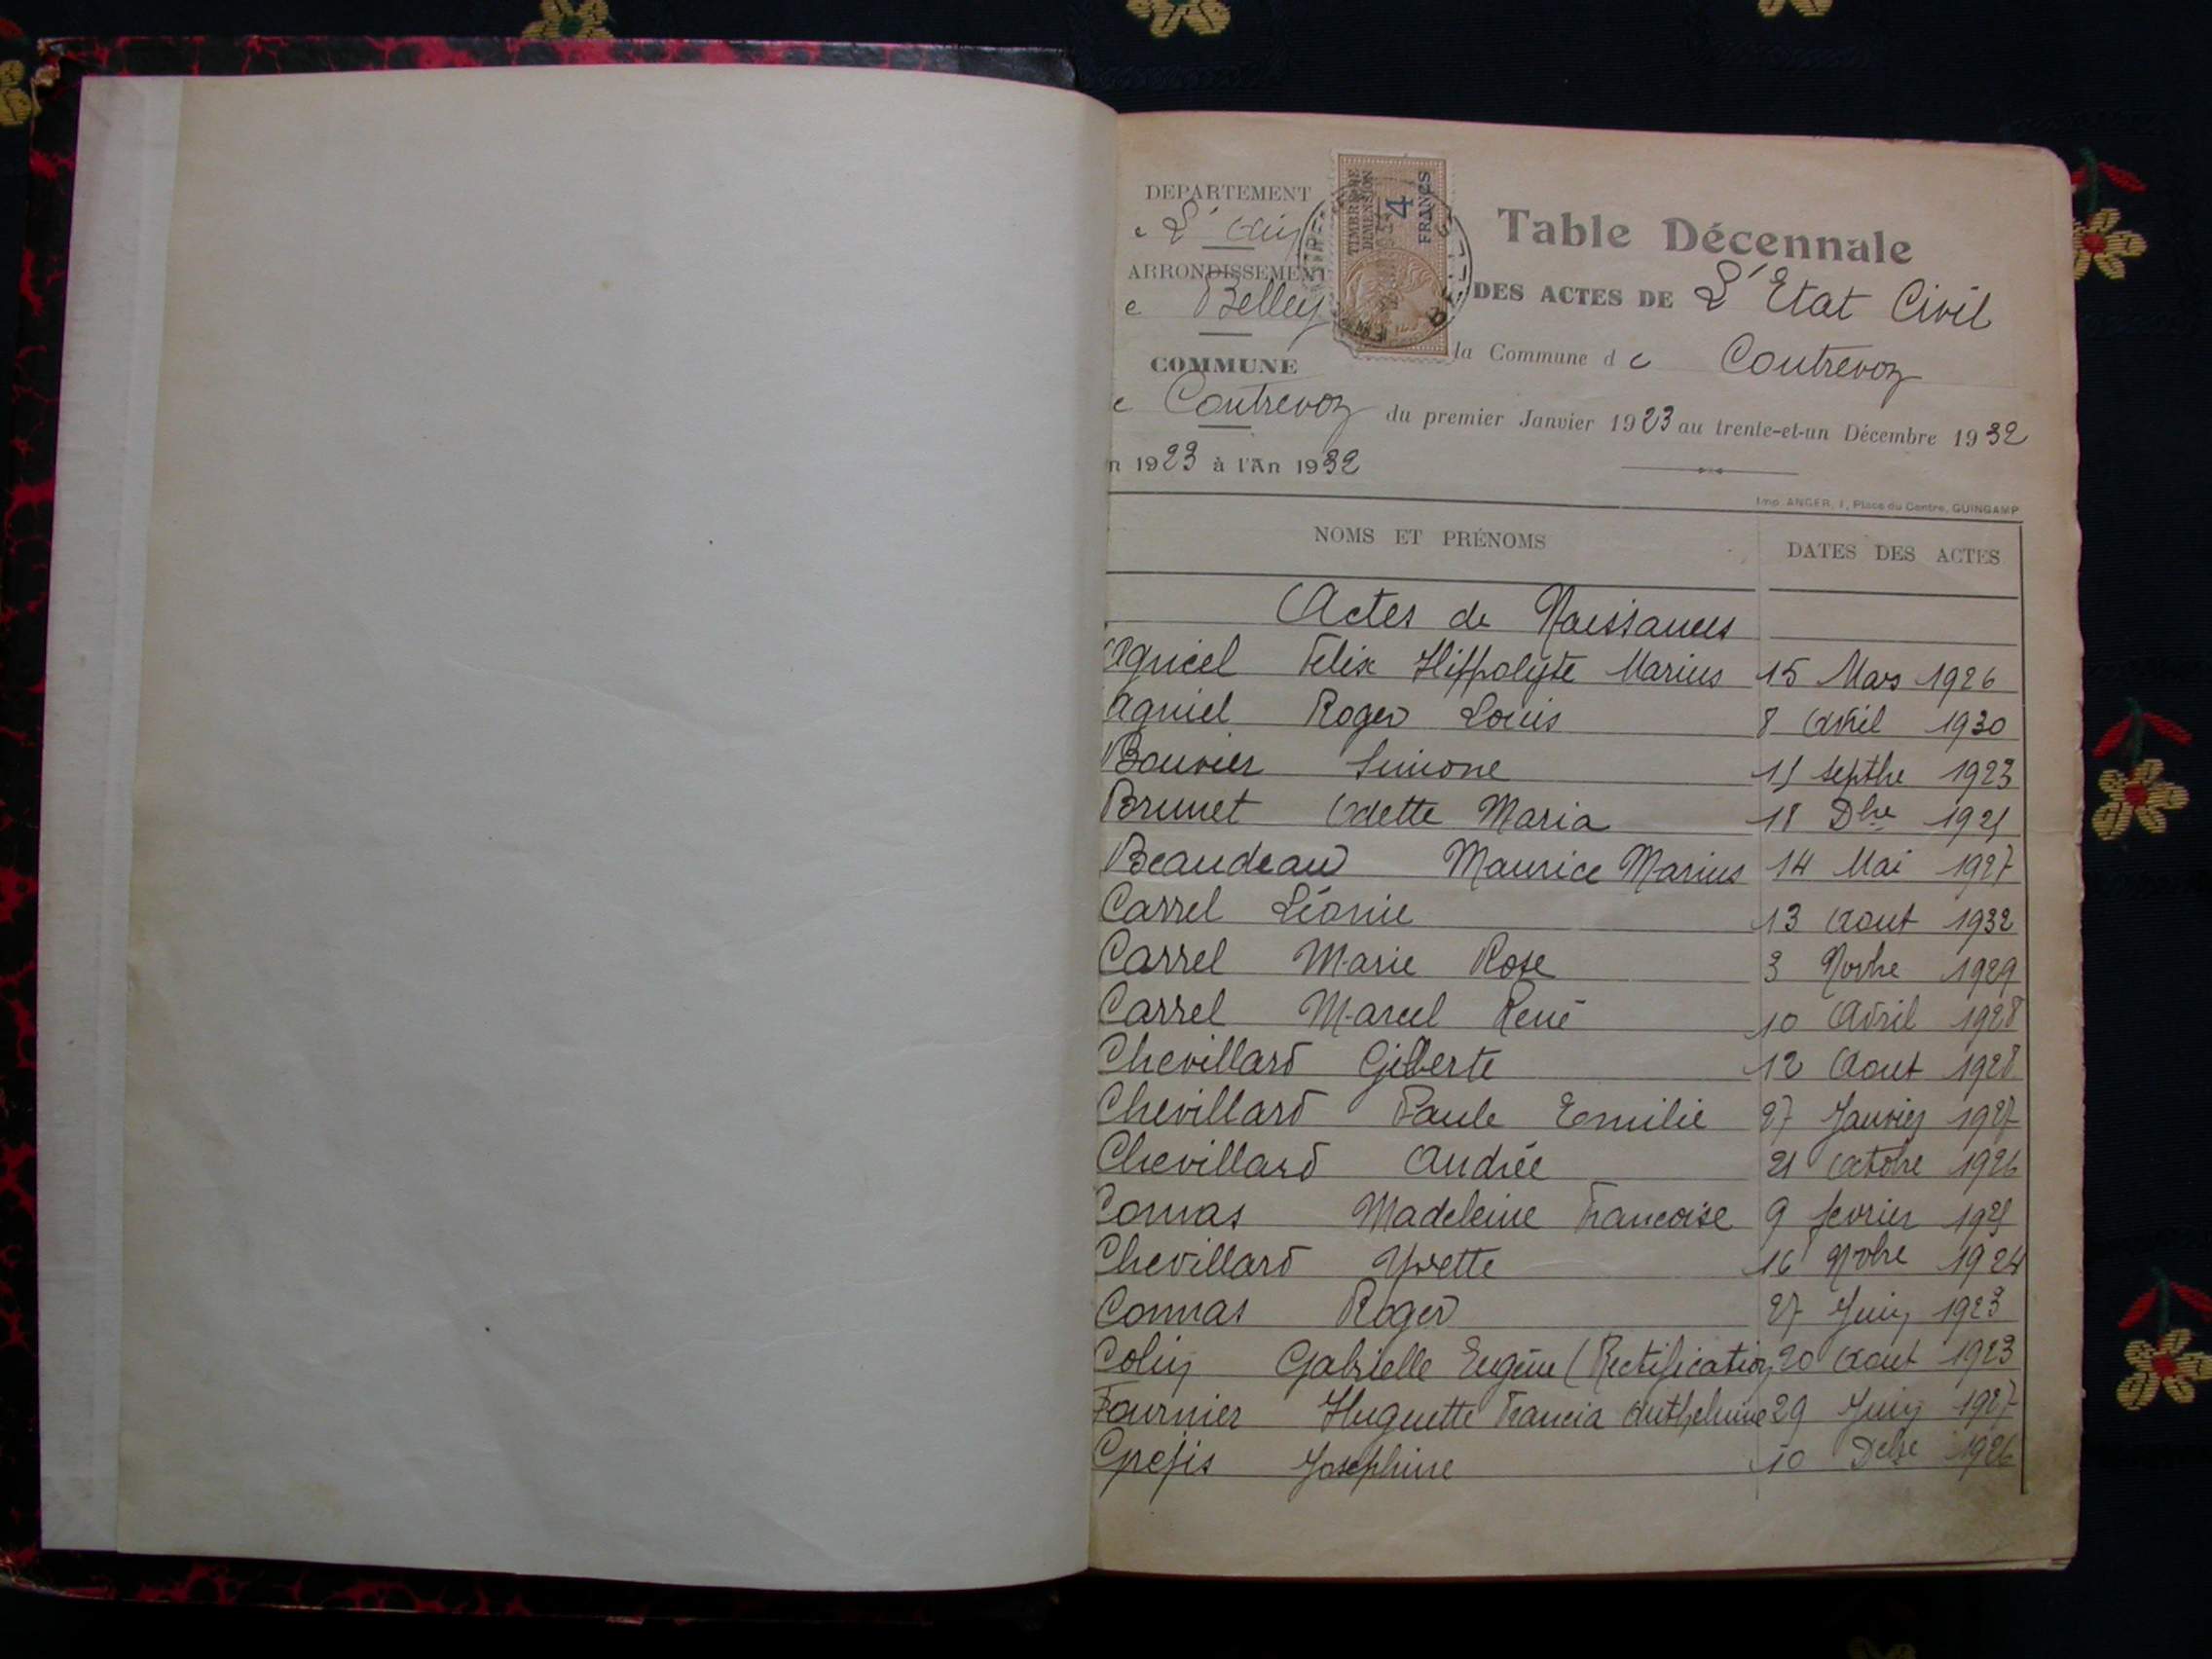 DEPARTEMENT
e L'Ain
ARRONDISSEMENT
e Belley
COMMUNE
e Contrevoz
n 1923 à l'An 1932
TIMBRE DE DIMENSION
4 FRANCS
Table Décennale
DES ACTES DE L'Etat Civil
la Commune de Contrevoz
du premier Janvier 1923 au trente-et-un Décembre 1932
Imp. ANGER, 1, Place du Centre, GUINGAMP
NOMS ET PRÉNOMS DATES DES ACTES
Actes de Naissances
Agniel Felix Hippolyte Marius 15 Mars 1926
Agniel Roger Louis 8 Avril 1930
Bouvier Simone 11 Septbre 1923
Brunet Odette Maria 18 Dbre 1925
Beaudeau Maurice Marius 14 Mai 1927
Carrel Léonie 13 Aout 1932
Carrel Marie Rose 3 Novbre 1929
Carrel Marcel René 10 Avril 1928
Chevillard Gilberte 12 Aout 1928
Chevillard Paule Emilie 27 Janvier 1927
Chevillard Andrée 21 Octobre 1926
Connas Madeleine Francoise 9 fevrier 1925
Chevillard Yvette 16 Novbre 1924
Connas Roger 27 Juin 1923
Colin Gabrielle Eugéne (Rectification 20 Aout 1923
Fournier Huguette Francia Anthelmine 29 Juin 1927
Josephine 10 Debre 1926